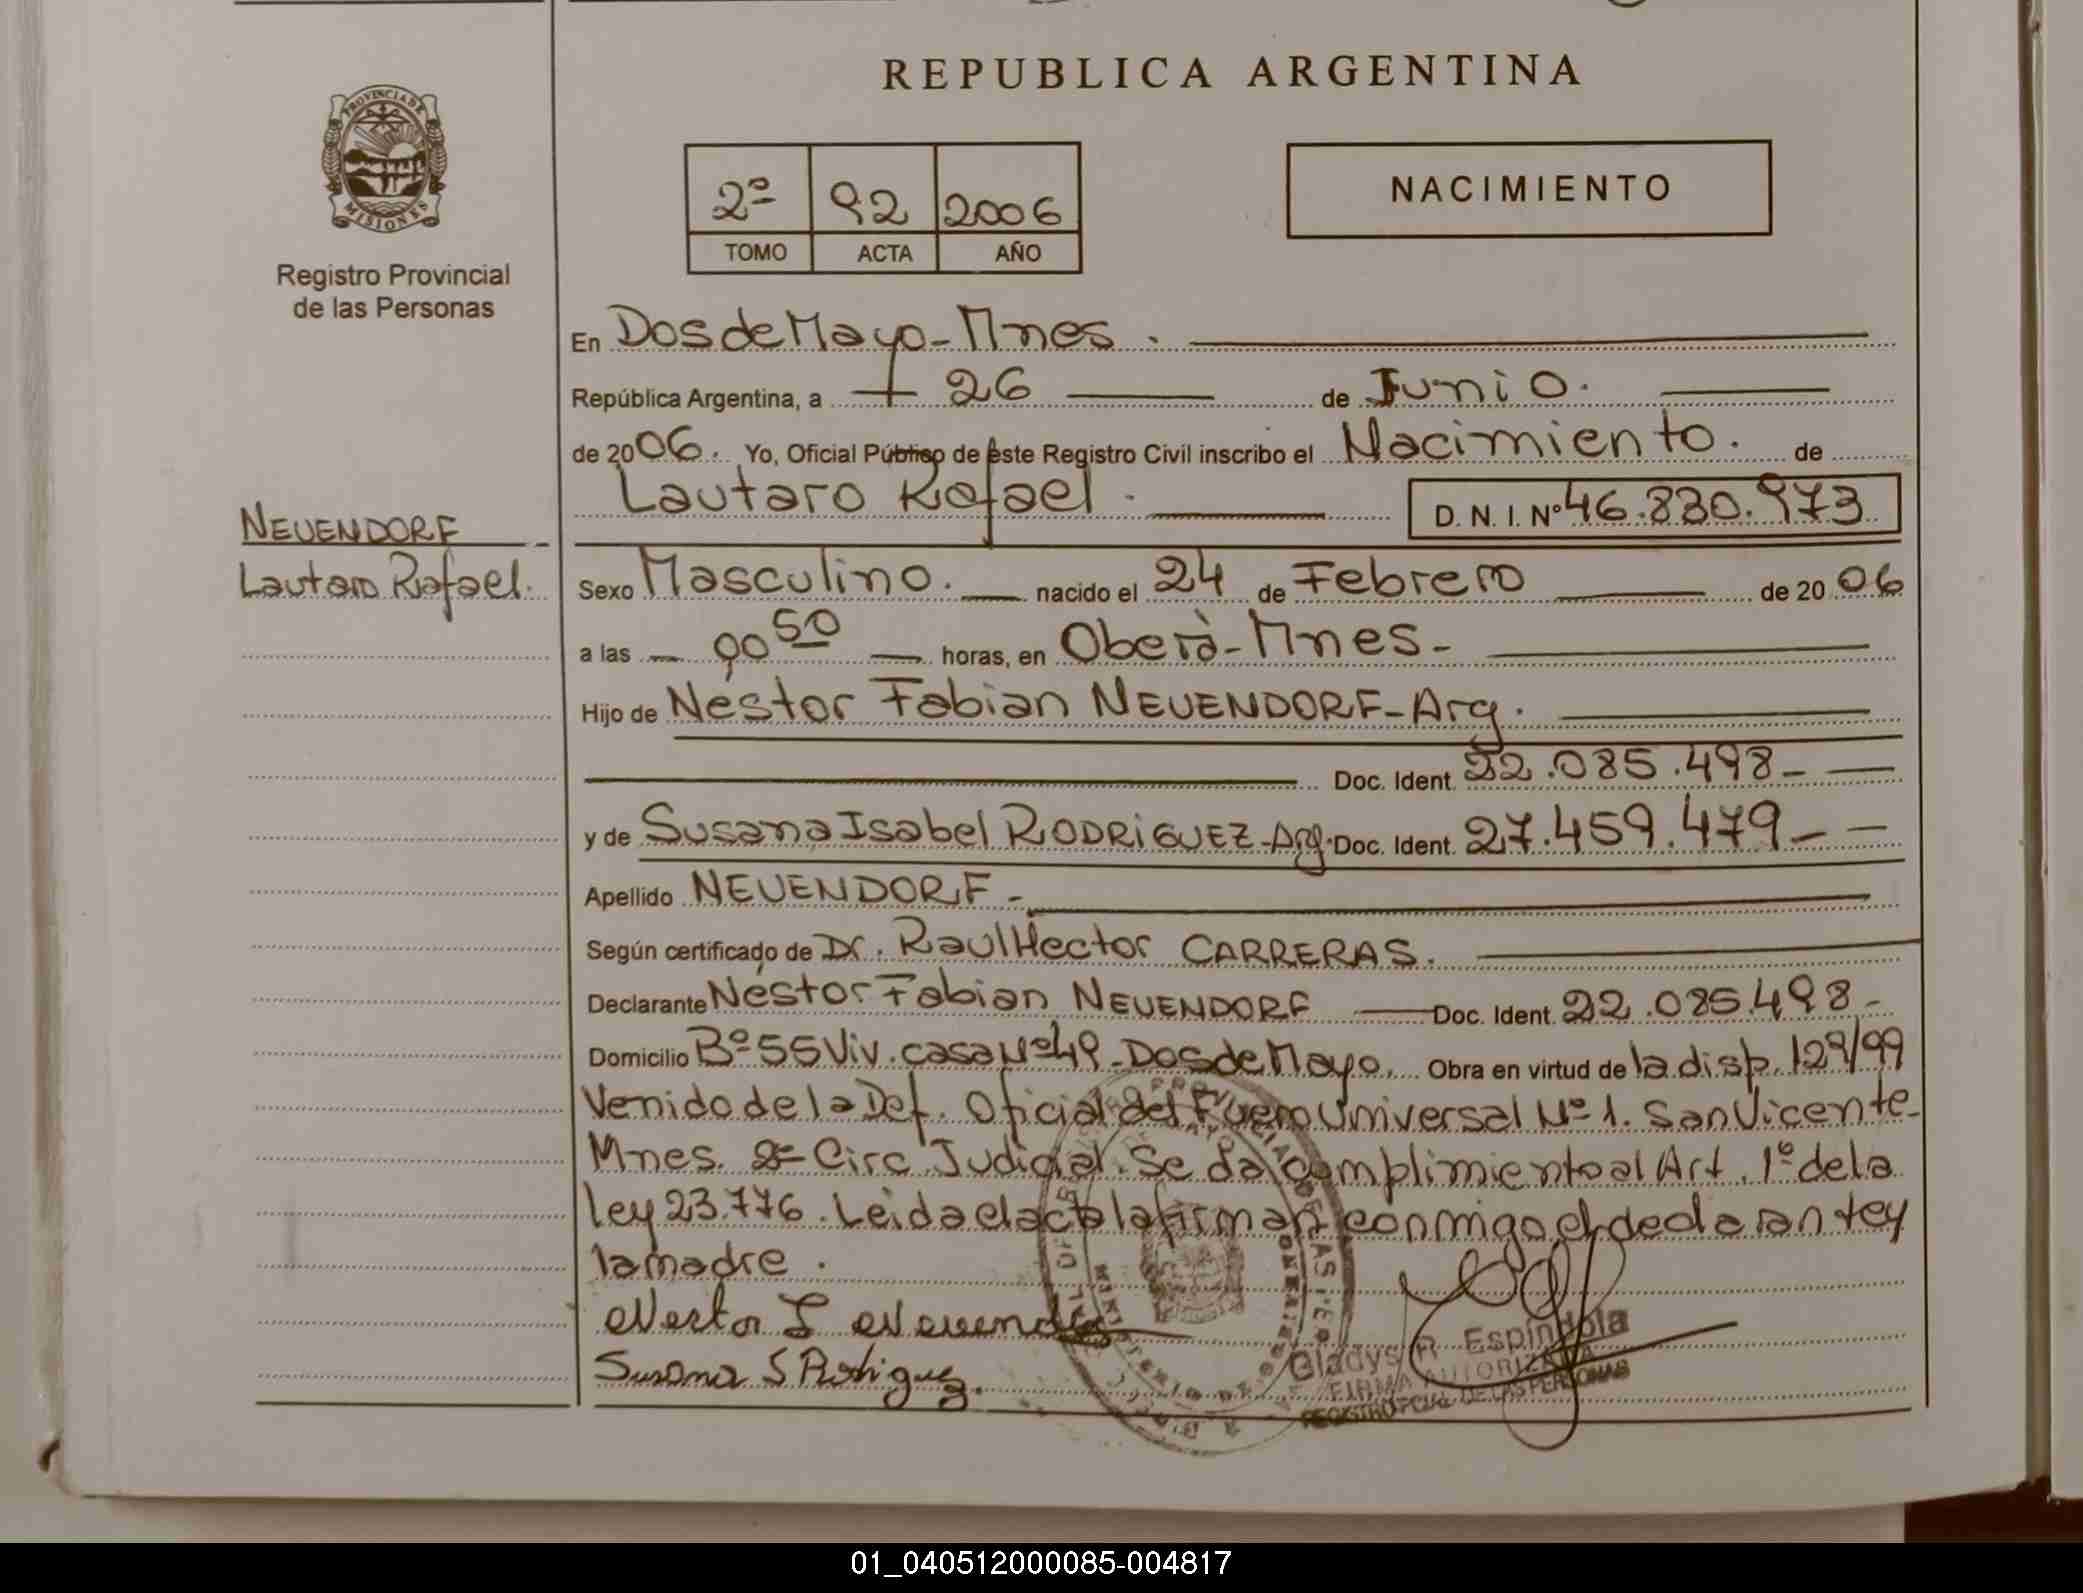 REPUBLICA ARGENTINA
PROVINCIA DE
MISIONES
Registro Provincial
de las Personas
2º 92 2006
TOMO ACTA AÑO
NACIMIENTO
En Dos de Mayo - Mnes.
República Argentina, a 26 de Junio.
de 2006. Yo, Oficial Público de este Registro Civil inscribo el Nacimiento. de
Lautaro Rafael. D. N. I. Nº 46.830.973
NEUENDORF
Lautaro Rafael.
Sexo Masculino. nacido el 24 de Febrero de 2006
a las 00 50 horas, en Oberà - Mnes -
Hijo de Nestor Fabian NEUENDORF - Arg.
Doc. Ident. 22.085.498 -
y de Susana Isabel RODRIGUEZ - Arg. Doc. Ident. 27.459.479 -
Apellido NEUENDORF -
Según certificado de Dr. Raul Hector CARRERAS.
Declarante Nestor Fabian NEUENDORF Doc. Ident. 22.085.498 -
Domicilio Bº 55 Viv. casa Nº 49 - Dos de Mayo. Obra en virtud de la disp. 129/99
Venido de la Def. Oficial del Fuero Universal Nº 1. San Vicente -
Mnes. 2º Circ Judicial. Se da complimiento al Art. 1º de la
ley 23.776. Leida el acta la firman conmigo el declarante y
la madre.
Nestor F Neuendorf
Susana I Rodriguez.
Gladys R. Espíndola
FIRMA AUTORIZADA
REGISTRO PCIAL. DE LAS PERSONAS
01_040512000085-004817